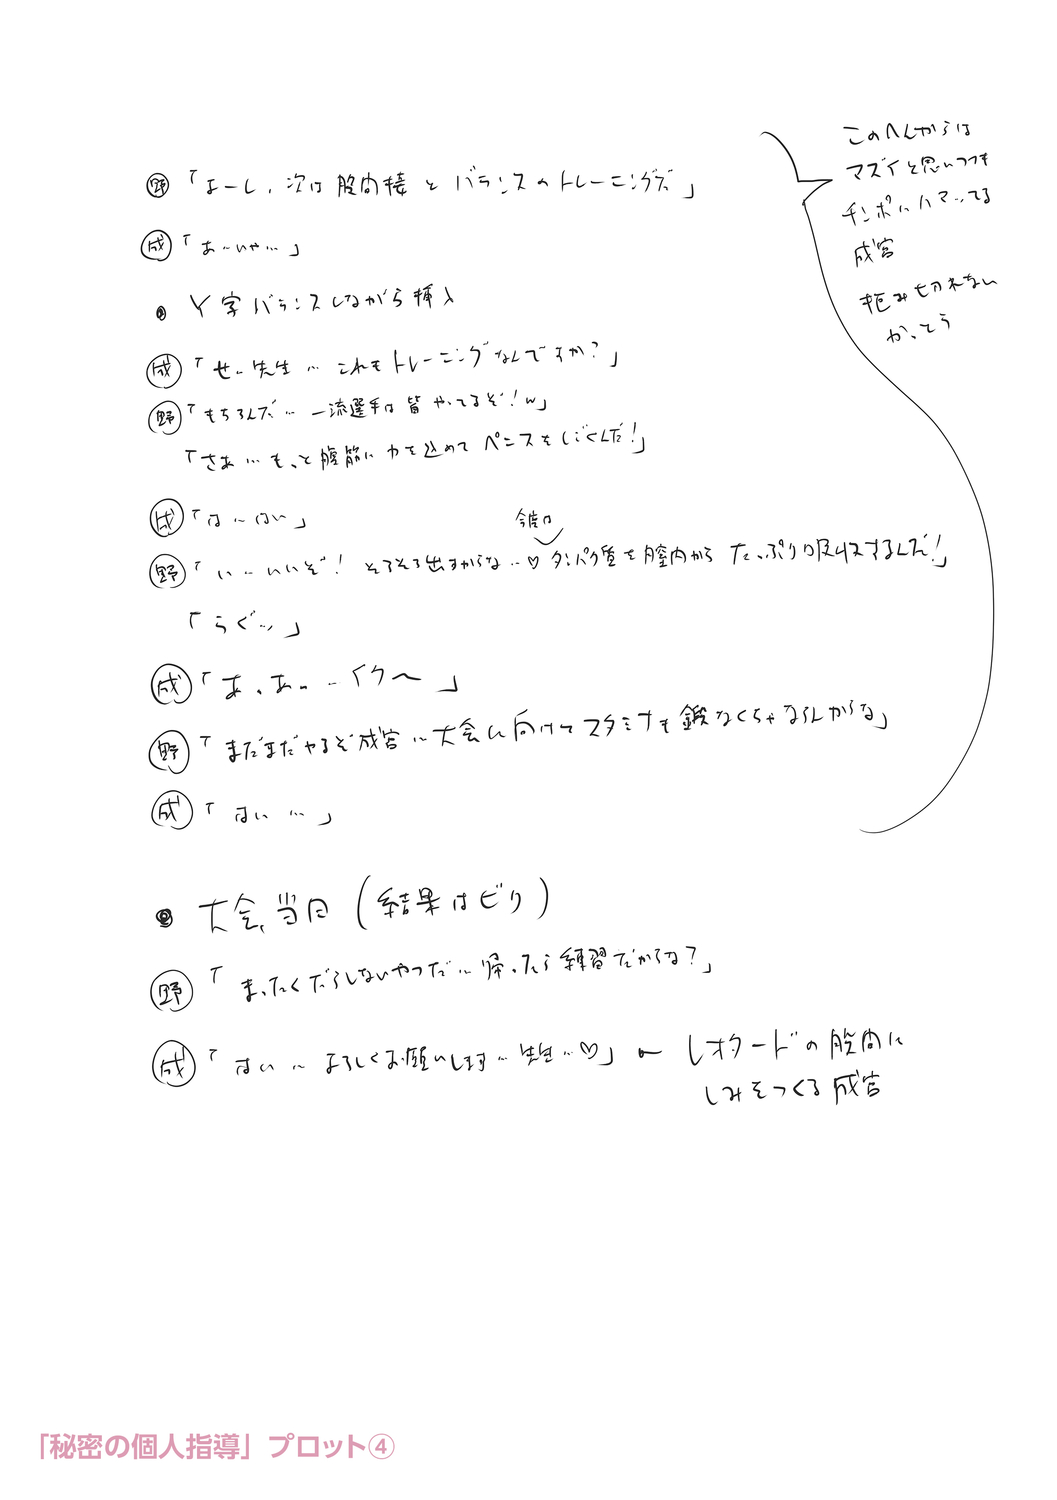 野「よーし、次は股関接とバランスのトレーニングだ」
成「あ…いや…」
● Y字バランスしながら挿入
成「せ…先生… これもトレーニングなんですか?」
野「もちろんだ… 一流選手は皆やってるぞ!w」
「さあ…もっと腹筋に力を込めてペニスをしごくんだ!」
成「は…はい」
今度は
野「い…いいぞ! そろそろ出すからな…♡ タンパク質を膣内からたっぷり吸収するんだ!」
「うぐ…」
成「あ、あ…イク〜」
野「まだまだやるぞ成宮…大会に向けてスタミナも鍛なくちゃならんからな」
成「はい…」
このへんからは
マズイと思いつつも
チンポにハマってる
成宮
拒み切れない
かっとう
● 大会当日(結果はビリ)
野「まったくだらしないやつだ…帰ったら練習だからな?」
成「はい…よろしくお願いします…先生…♡」← レオタードの股間に
しみをつくる成宮
「秘密の個人指導」プロット④